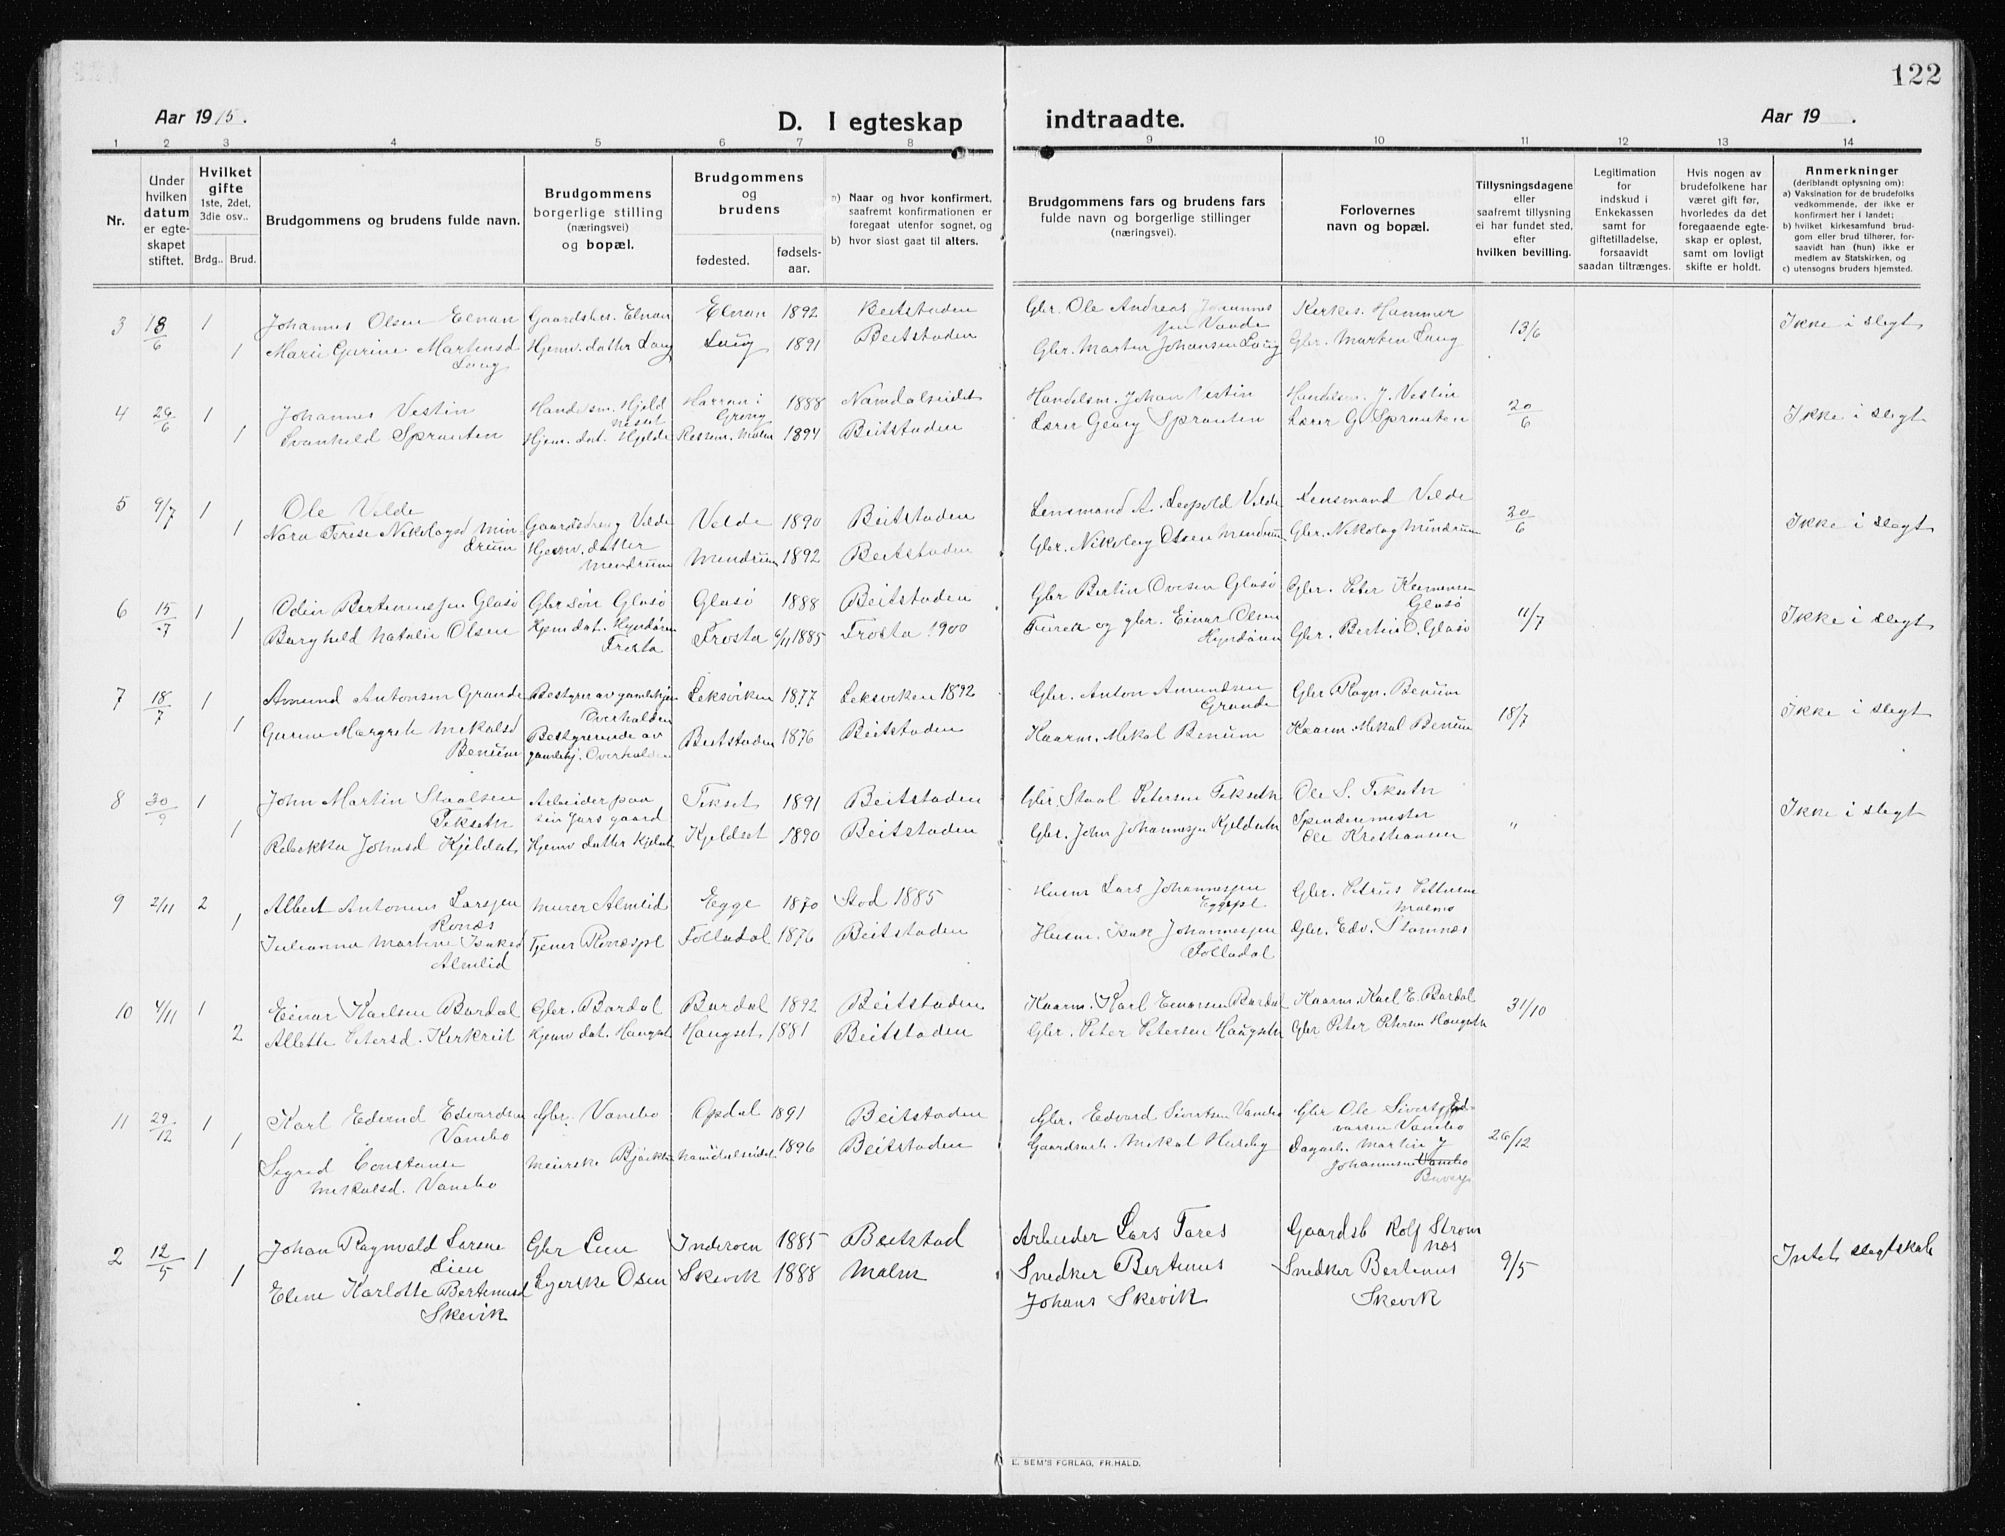 122
Aar 1915.
D. I egteskap indtraadte.
Aar 19 .
1 2 3 4 5 6 7 8 9 10 11 12 13 14
Nr.
Under
hvilken
datum
er egte-
skapet
stiftet.
Hvilket
gifte
1ste, 2det,
3die osv..
Brdg.. Brud.
Brudgommens og brudens fulde navn.
Brudgommens
borgerlige stilling
(næringsvei)
og bopæl.
Brudgommens
og
brudens
fødested.
fødsels-
aar.
a) Naar og hvor konfirmert,
saafremt konfirmationen er
foregaat utenfor sognet, og
b) hvor sidst gaat til alters.
Brudgommens fars og brudens fars
fulde navn og borgerlige stillinger
(næringsvei).
Forlovernes
navn og bopæl.
Tillysningsdagene
eller
saafremt tillysning
ei har fundet sted,
efter
hvilken bevilling.
Legitimation
for
indskud i
Enkekassen
samt for
giftetilladelse,
forsaavidt
saadan tiltrænges.
Hvis nogen av
brudefolkene har
været gift før,
hvorledes da det
foregaaende egte-
skap er opløst,
samt om lovligt
skifte er holdt.
Anmerkninger
(deriblandt oplysning om):
a) Vaksination for de brudefolks
vedkommende, der ikke er
konfirmert her i landet;
b) hvilket kirkesamfund brud-
gom eller brud tilhører, for-
saavidt han (hun) ikke er
medlem av Statskirken, og
c) utensogns bruders hjemsted.
3 18/6 1 Johannes Olsen Elnan Gaardbr. Elnan Elnan 1892 Beitstaden Gbr. Ole Andreas Johannes
sen Vaade Kirkes. Hammer 13/6 Ikke i slegt
1 Marie Gurine Martinsd Hjemv. datter Laug Laug 1891 Beitstaden Gbr. Martin Johansen Laug Gbr. Martin Laug
Laug
4 26/6 1 Johannes Vestin Handelsm. Hjeld
nesset Harran i
Grong 1888 Namdalseidet Handelsm. Johan Vestin Handelsm. J. Vestin 20/6 Ikke i slegt
1 Svanhild Sprauten Hjem. dat. Hjelde Malm 1894 Beitstaden Lærer Georg Sprauten Lærer G. Sprauten
5 9/7 1 Ole Velde Gaardsdreng Velde Velde 1890 Beitstaden Lensmand A. Leopold Velde Lensmand Velde 20/6 Ikke i slegt
1 Nora Terese Nikolagsd Min-
drum Hjemv. datter
Mendrum Mendrum 1892 Beitstaden Gbr. Nikolag Olsen Mendrum Gbr. Nikolag Mindrum
6 15/7 1 Odin Bertinussen Glasø Gbr søn Glasø Glasø 1888 Beitstaden Gbr Bertin Ovesen Glasø Gbr. Peter
Glasø 11/7 Ikke i slegt
1 Borghild Natalie Olsen Hjemdat.
Frosta Frosta 6/11 1885 Frosta 1900 og gbr. Einar Olsen Gbr. Bertin O. Glasø
7 18/7 1 Amund Antonsen Grande Bestyrer av gamlehjem
Overhalden Leksviken 1877 Leksviken 1892 Gbr. Anton Amundsen
Grande Gbr Ragn. Benum 18/7 Ikke i slegt
1 Gurine Margrete Mekalsd
Benum Bestyrerinde av
gamlehj. Overhalden Beitstaden 1876 Beitstaden Kaarm. Mekal Benum Kaarm. Mekal Benum
8 30/9 1 John Martin Staalsen
Tekseth Arbeider paa
sin fars gaard Tekset 1891 Beitstaden Gbr Staal Petersen Tekseth Ole S. Tekseth " Ikke i slegt
1 Rebekka Johnsd Kjeldset Hjemv datter Kjeldset Kjeldset 1890 Beitstaden Gbr. John Johannesen Kjeldseth
Ole Kristiansen
9 2/11 2 Albert Antonius Larsen
Ronæs Murer Almlid Egge 1870 Stod 1885 Husm Lars Johannesen
Eggepl Gbr. Petrus
Malmo
1 Julianna Martine Isaksd
Almlid Tjener Ronæspl Folladal 1876 Beitstaden Husm. Isak Johannesen
Folladal Gbr. Edv. Stamnæs
10 4/11 1 Einar Karlsen Bardal Gbr. Bardal Bardal 1892 Beitstaden Kaarm. Karl Einarsen Bardal Kaarm. Karl E. Bardal 31/10
2 Allette Petersd. Hjemv dat. Haugset Haugset 1881 Beitstaden Gbr. Peter Petersen Haugseth Gbr Peter Petersen Haugseth
11 29/12 1 Karl Edvard Edvardsen
Vanebo Gbr. Vanebo Opdal 1891 Beitstaden Gbr. Edvard Sivertsen Vanebo Gbr Ole Sivert Ed-
vardsen Vanebo 26/12
1 Sigrid Constanse
Mekalsd. Vanebo Meierske Namdalseidet 1896 Beitstaden Gaardsarb. Mekal Husby Dagarb. Martin J
Johannesen Vanebo
2 12/5 1 Johan Ragnvald Larsen
Lien Gbr Lien Inderøen 1885 Beitstad Arbeider Lars Fares Gaardsb Rolf Strøm
næs 9/5 Intet slegtskab
1 Eline Karlotte Bertinusd
Skevik Syerske Osen Skevik 1888 Malm Snedker Bertinus
Johans Skevik Snedker Bertinus
Skevik
E. SEM'S FORLAG, FR.HALD.